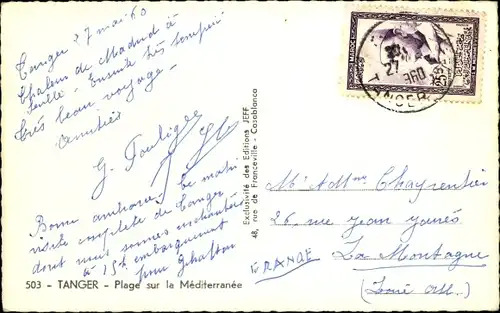 Tanger 27 mai 60
Chaleur de Madrid à
Séville - Ensuite très tempéré
Très beau voyage -
Amitiés
Bonne ambiance. Ce matin
visite complète de Tanger
dont nous sommes enchantés
à 15h embarquement
pour
503 - TANGER - Plage sur la Méditerranée
Exclusivité des Editions JEFF
48, rue de Franceville - Casablanca
MAROC
TANGER
27
960
Mr et Mme Charpentier
26, rue Jean Jaurès
La Montagne
(Loire Atl.)
FRANCE